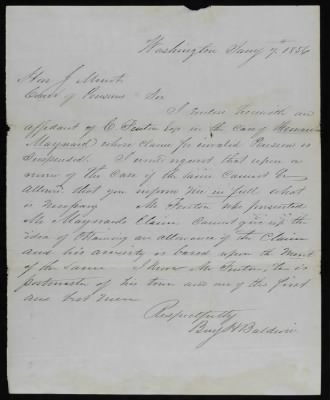 Washington Jany 7th 1856
Hon J Minot
Comr of Pensions Sir
I enclose herewith an
affidavit of C Fenton Esq in the case of Hermon
Maynard whose claim for invalid Pension is
Suspended. I would request that upon a
review of the Case if the claim cannot be
allowed that you inform me in full what
is necessary Mr Fenton who presented
Mr Maynards Claim cannot give up the
idea of Obtaining an allowance of the Claim
and his anxiety is based upon the merit
of the Same I know Mr Fenton, he is
postmaster of his town and one of the first
and best men
Respectfully
Benj H Baldwin